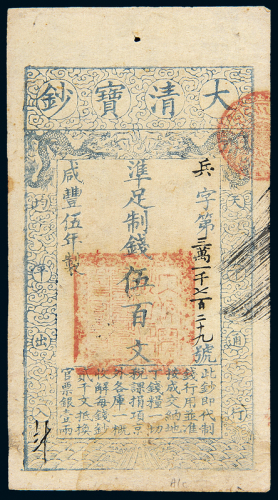 大清寶鈔
天下通行
兵字第三萬一千六百二十九號
準足制錢伍百文
咸豐伍年製
均平出入
此鈔即代制
錢行用並准
按成交納地
丁錢糧一切
稅課捐項京
外各庫一概
收解每錢鈔
貳千文抵換
官票銀壹兩